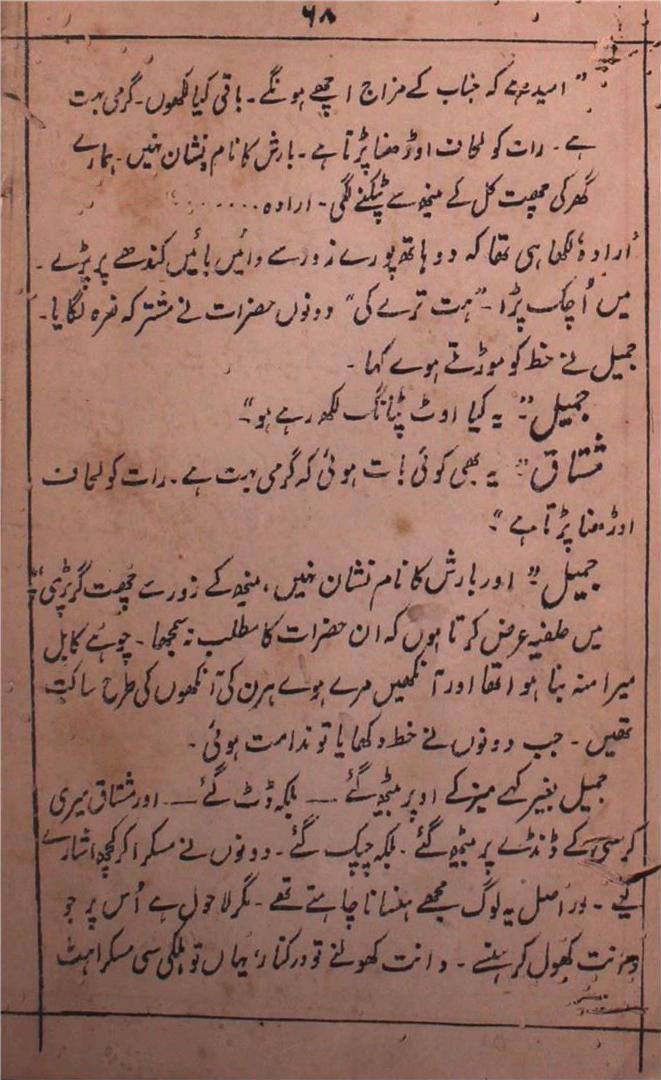 ۶۸
"امید ہے کہ جناب کے مزاج اچھے ہونگے۔ باقی کیا لکھوں۔ گرمی بہت
ہے۔ رات کو لحاف اوڑھنا پڑتا ہے۔ بارش کا نام و نشان نہیں۔ ہمارے
گھر کی چھت کل کے مینھ سے ٹپکنے لگی۔ ارادہ........"
"ارادہ" لکھا ہی تھا کہ دو ہاتھ پورے زور سے دائیں بائیں کندھے پر پڑے۔
میں اُچک پڑا۔ "ہت ترے کی" دونوں حضرات نے مشترکہ نعرہ لگایا۔
جمیل نے خط کو موڑتے ہوے کہا۔
جمیل:۔ "یہ کیا اوٹ پٹانگ لکھ رہے ہو"۔
مشتاق:۔ "یہ بھی کوئی بات ہوئی کہ گرمی بہت ہے۔ رات کو لحاف
اوڑھنا پڑتا ہے"۔
جمیل:۔ "اور بارش کا نام نشان نہیں، مینھ کے زور سے چھت گر پڑی"؟
میں حلفیہ عرض کرتا ہوں کہ ان حضرات کا مطلب نہ سمجھا۔ چوہے کا بل
میرا منہ بنا ہوا تھا اور آنکھیں مرے ہوے ہرن کی آنکھوں کی طرح ساکت
تھیں۔ جب دونوں نے خط دکھایا تو ندامت ہوئی۔
جمیل بغیر کہے میز کے اوپر بیٹھ گئے — بلکہ ڈٹ گئے — اور مشتاق میری
کرسی کے ڈنڈے پر بیٹھ گئے۔ بلکہ چپک گئے۔ دونوں نے مسکرا کر کچھ اشارے
کیے۔ دراصل یہ لوگ مجھے ہنسانا چاہتے تھے۔ مگر لاحول ہے اُس پر جو
دانت کھول کر ہنسے۔ دانت کھولنے تو درکنار، یہاں تو ہلکی سی مسکراہٹ